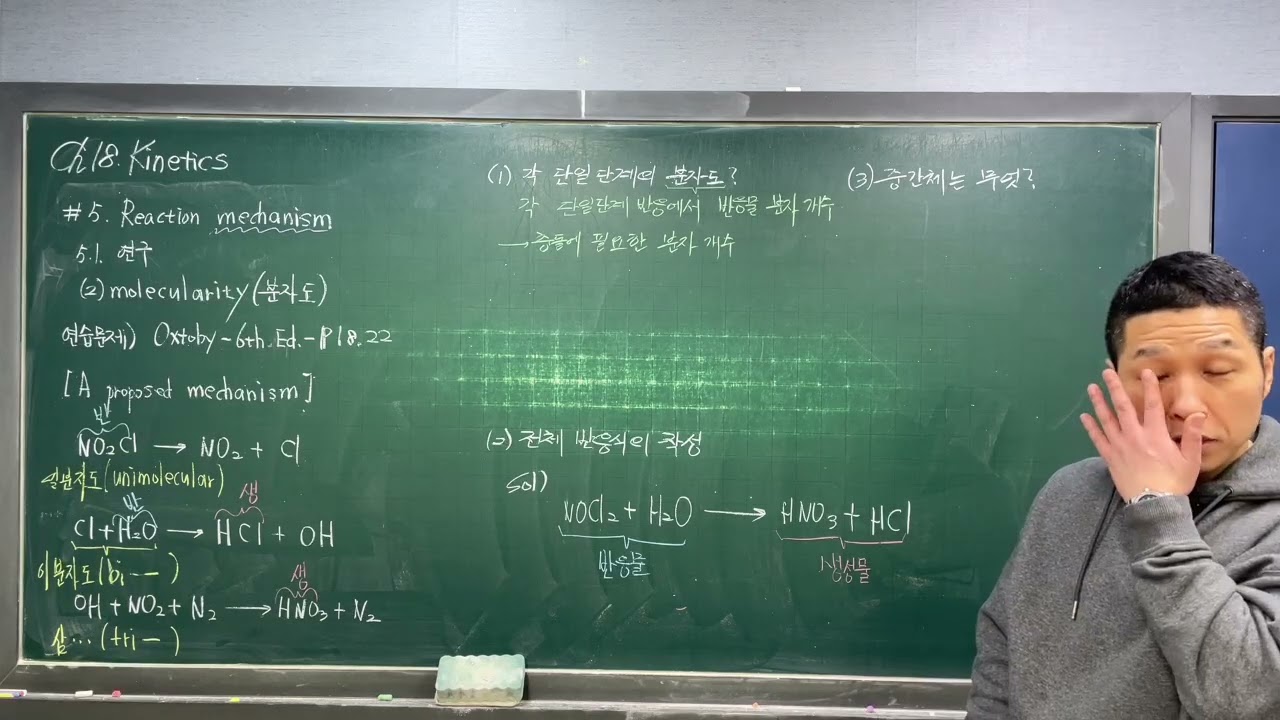 Ch18. Kinetics
#5. Reaction mechanism
5.1. 연구
(2) molecularity (분자도)
연습문제) Oxtoby - 6th. Ed. - P18.22
[A proposed mechanism]
반
NO₂Cl → NO₂ + Cl
일분자도(unimolecular)
반 생
Cl + H₂O → HCl + OH
이분자도(bi- —)
생
OH + NO₂ + N₂ → HNO₃ + N₂
삼… (tri —)
(1) 각 단일단계의 분자도?
각 단일단계 반응에서 반응물 분자 개수
→ 충돌에 필요한 분자 개수
(2) 전체 반응식의 작성
sol)
NOCl₂ + H₂O → HNO₃ + HCl
반응물 생성물
(3) 중간체는 무엇?